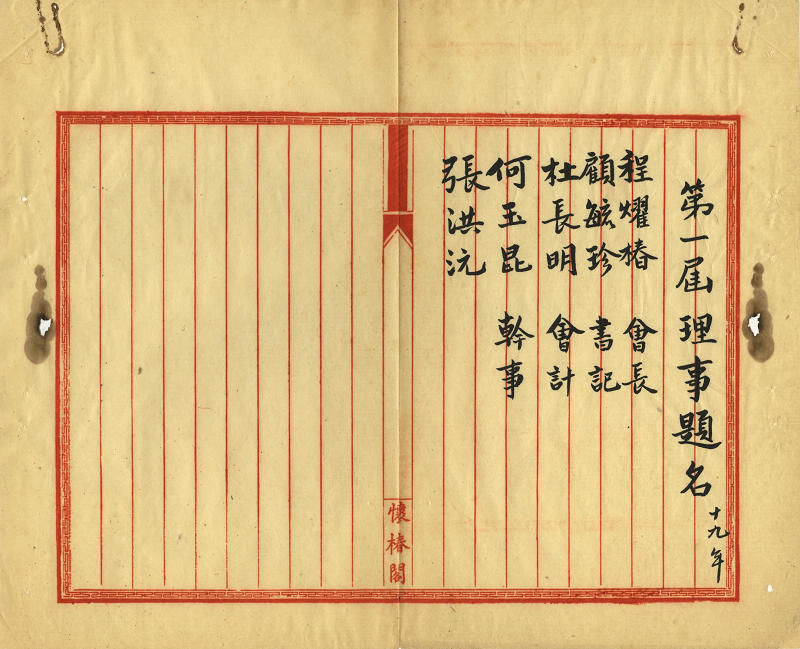 第一屆理事題名 十九年
程耀椿 會長
顧毓珍 書記
杜長明 會計
何玉昆 幹事
張洪沅
懷椿閣